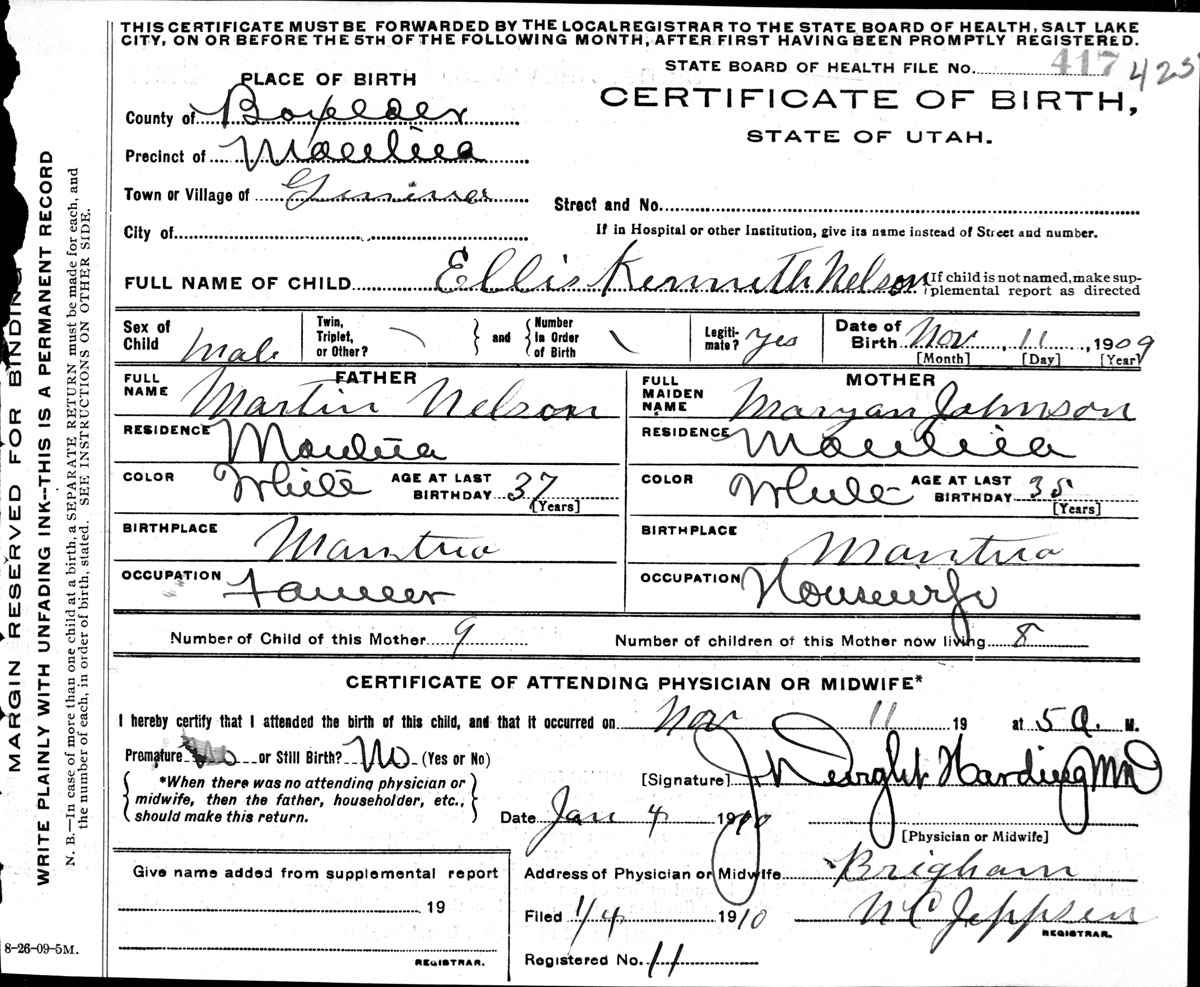 THIS CERTIFICATE MUST BE FORWARDED BY THE LOCAL REGISTRAR TO THE STATE BOARD OF HEALTH, SALT LAKE
CITY, ON OR BEFORE THE 5TH OF THE FOLLOWING MONTH, AFTER FIRST HAVING BEEN PROMPTLY REGISTERED.
STATE BOARD OF HEALTH FILE No. 417 425
PLACE OF BIRTH
CERTIFICATE OF BIRTH,
STATE OF UTAH.
County of Boxelder
Precinct of Mantua
Town or Village of
Street and No.
City of
If in Hospital or other Institution, give its name instead of Street and number.
FULL NAME OF CHILD Ellis Kenneth Nelson {If child is not named, make sup-
plemental report as directed
Sex of Child Male
Twin, Triplet, or Other?
and
Number in Order of Birth
Legiti-mate? Yes
Date of Birth Nov 11, 1909
[Month] [Day] [Year]
FATHER
FULL NAME Martin Nelson
RESIDENCE Mantua
COLOR White AGE AT LAST BIRTHDAY 37
[Years]
BIRTHPLACE Mantua
OCCUPATION Farmer
MOTHER
FULL MAIDEN NAME Maryan Johnson
RESIDENCE Mantua
COLOR White AGE AT LAST BIRTHDAY 35
[Years]
BIRTHPLACE Mantua
OCCUPATION Housewife
Number of Child of this Mother 9 Number of children of this Mother now living 8
CERTIFICATE OF ATTENDING PHYSICIAN OR MIDWIFE*
I hereby certify that I attended the birth of this child, and that it occurred on Nov 11 19 at 5 a. M.
Premature No or Still Birth? No (Yes or No)
*When there was no attending physician or
midwife, then the father, householder, etc.,
should make this return.
[Signature] J Dwight Harding MD
Date Jan 4 1910
[Physician or Midwife]
Address of Physician or Midwife Brigham
Filed 1/4 1910 N C Jeppsen
REGISTRAR.
Registered No. 11
Give name added from supplemental report
19
REGISTRAR.
MARGIN RESERVED FOR BINDING
WRITE PLAINLY WITH UNFADING INK--THIS IS A PERMANENT RECORD
N. B.—In case of more than one child at a birth, a SEPARATE RETURN must be made for each, and
the number of each, in order of birth, stated. SEE INSTRUCTIONS ON OTHER SIDE.
8-26-09-5M.